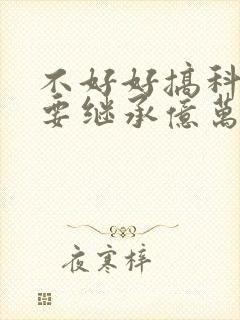 不好好搞科
要继承億萬
夜寒梓